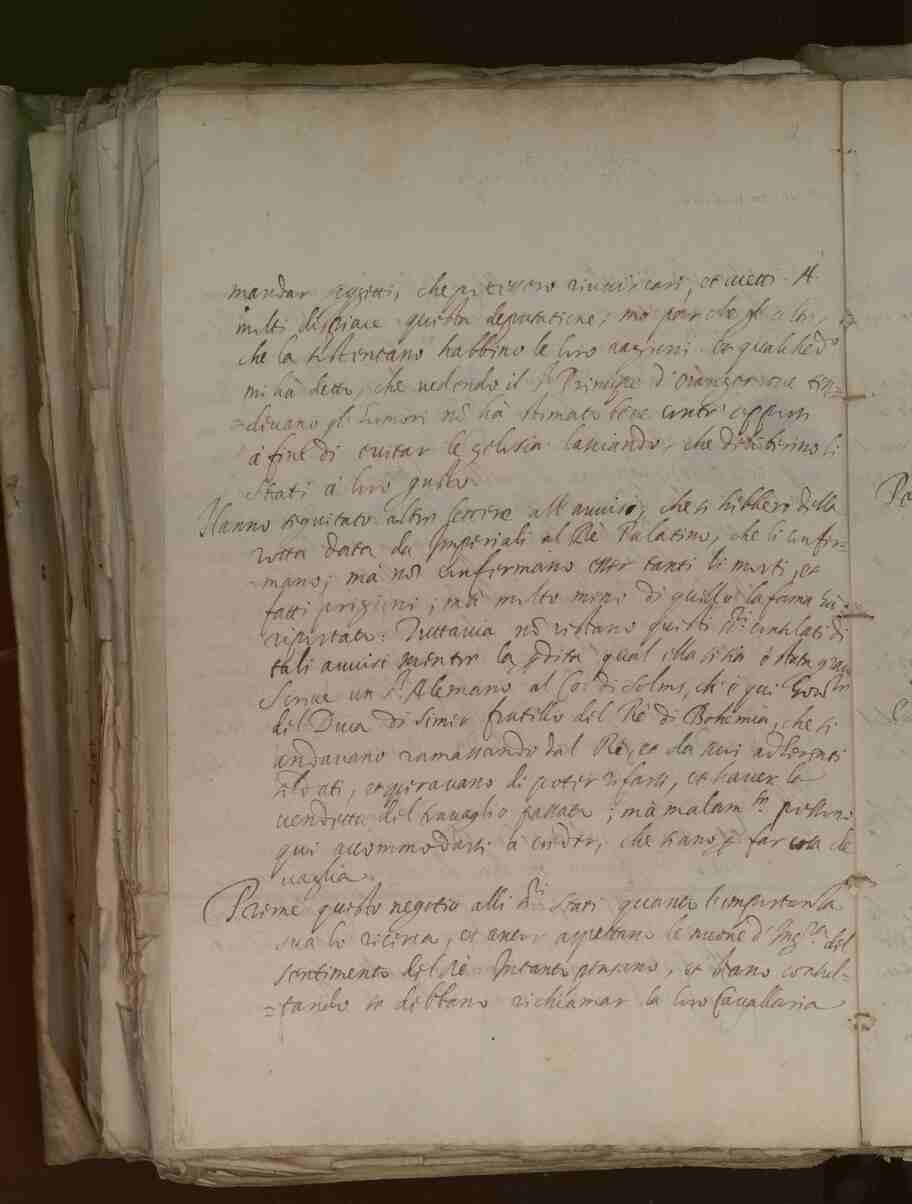 mandar soggetti, che potessero rinunciarsi, et altri. A
molti dispiace questa deputatione; mà par che gl'altri,
che la sostentano habbino le loro raggioni. Et qualchedº
mi hà detto, che vedendo il Sr Principe d'Oranges ove ten=
=devano gl'humori nõ hà stimato bene contr'opporsi
à fine di evitar le gelosie lasciando, che deliberino li
Stati à loro gusto.
Hanno seguitato altre lettere all'auuiso, che si hebbero della
rotta data da Imperiali al Rè Palatino, che li confir=
=mano; mà nõ confermano esser tanti li morti, et
fatti prigioni; mà molto meno di quello la fama hà
riportato. Tuttauia nõ restano questi Sri consolati di
tali auuisi mentre la pdita qual ella si sia è stata graue
Scriue un Sr Alemano al Co: di Solms, ch'è qui Govr
del Duca di Simir fratello del Rè di Bohemia, che si
andauano ramassando dal Rè, et da suoi adherenti
soldati, et sperauano di poter rifarsi, et hauer la
uendetta del trauaglio passato; mà malamte possono
qui accommodarsi à creder, che siano p far cosa che
uaglia.
Preme questo negotio alli Sri Stati quanto l'importanza
sua lo ricerca, et ancor aspettano le nuoue d'Ingra del
sentimento del Rè. Intanto pensano, et uano consul=
=tando se debbano richiamar la loro Cauallaria